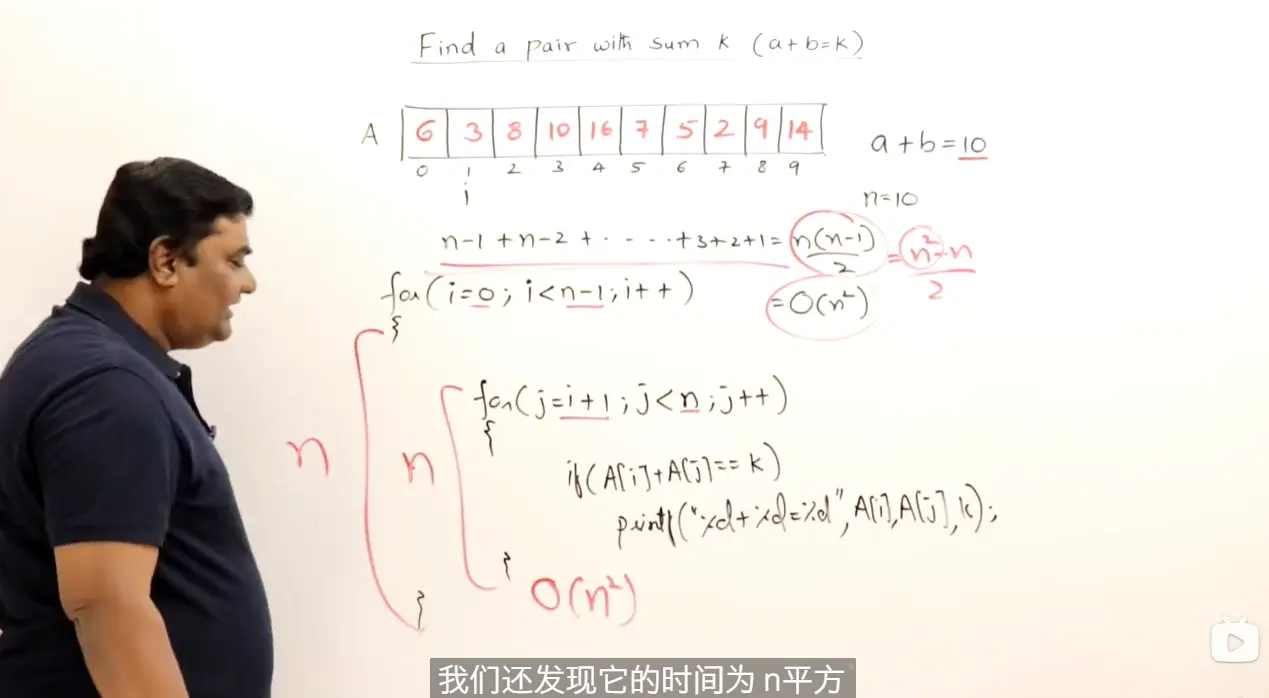 Find a pair with sum K (a+b=k)
A 6 3 8 10 16 7 5 2 9 14 a+b=10
0 1 2 3 4 5 6 7 8 9
i
n=10
n-1 +n-2 + · - - - · +3+2+1 = n(n-1)/2 = n²-n/2
for(i=0; i<n-1; i++) =O(n²)
{
for(j=i+1; j<n; j++)
{
n n
if(A[i]+A[j]==k)
printf("%d+%d=%d",A[i],A[j],k);
}
} O(n²)
我们还发现它的时间为 n平方